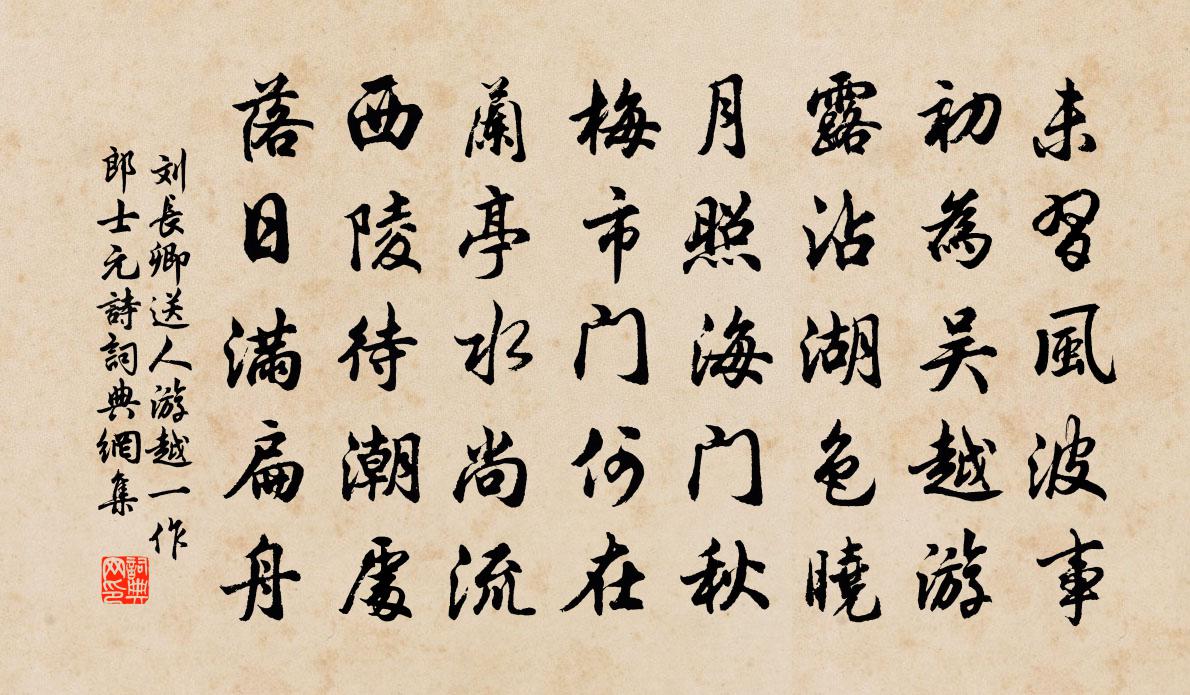 未習風波事
初為吴越游
露沾湖色曉
月照海门秋
梅市门何在
蘭亭水尚流
西陵待潮處
落日满扁舟
刘長卿送人游越一作
郎士元詩詞典網集
詞典
网印